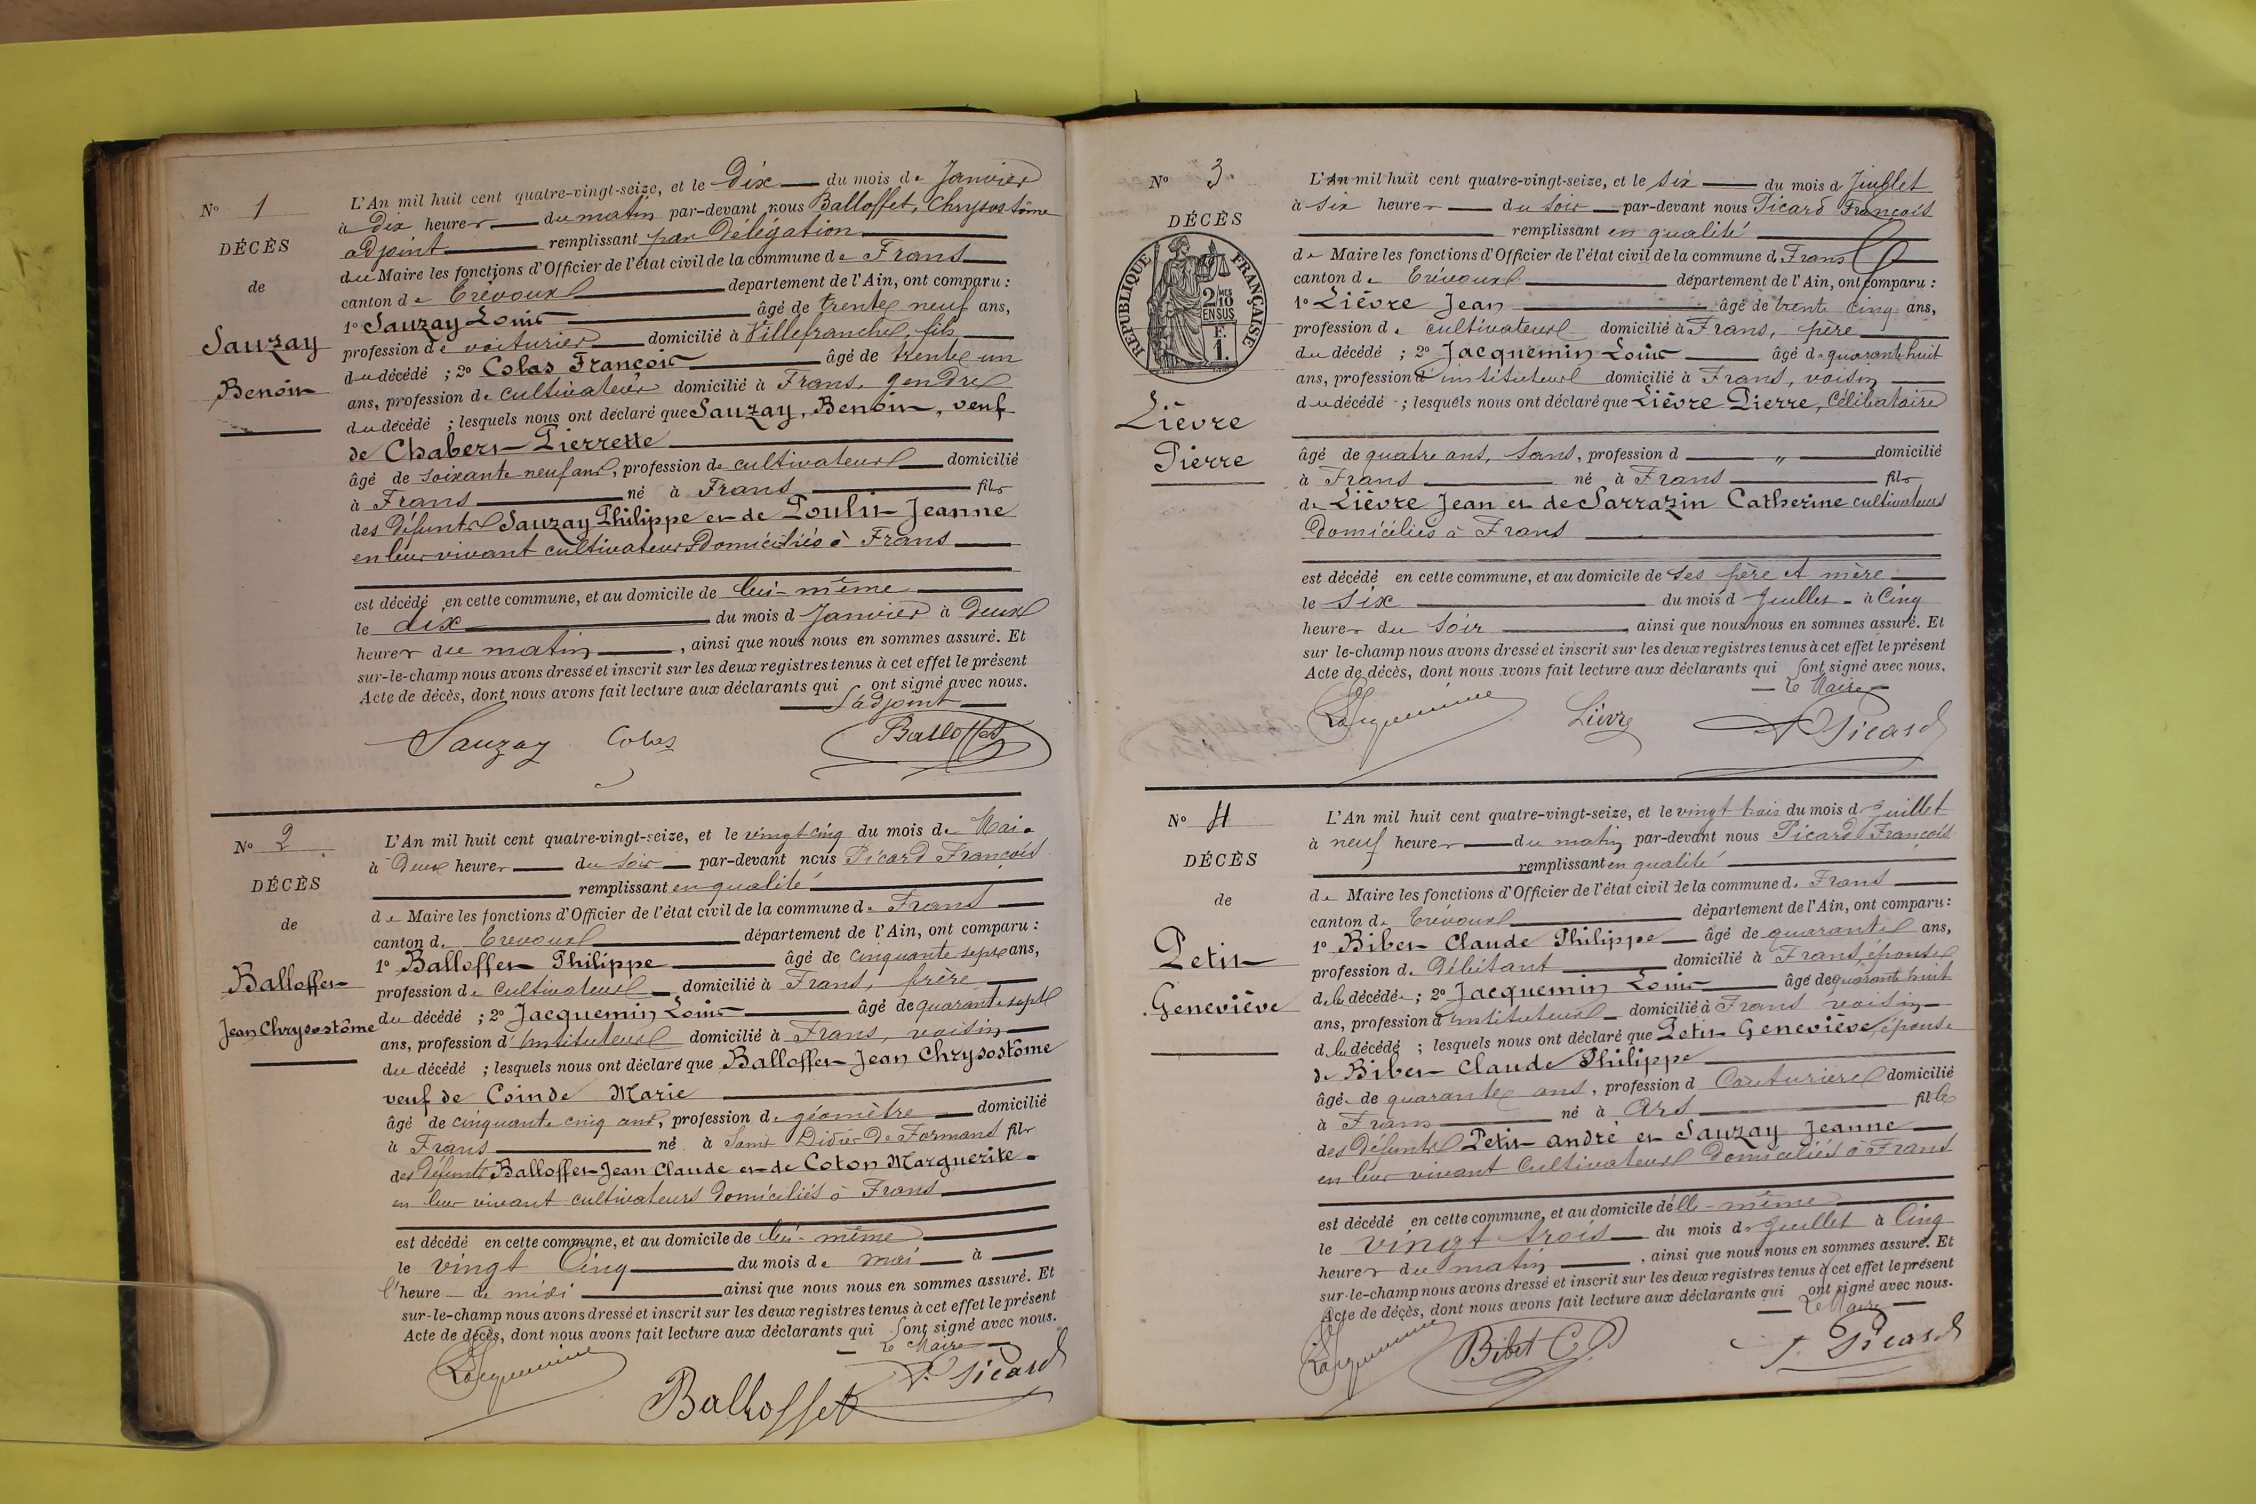 N° 1
DÉCÈS
de
Sauzay
Benoit
L'An mil huit cent quatre-vingt-seize, et le Dix du mois de Janvier
à Dix heures du matin par-devant nous Balloffet, Chrysostôme
adjoint remplissant par Délégation
du Maire les fonctions d'Officier de l'état civil de la commune de Frans
canton de Trévoux département de l'Ain, ont comparu :
1° Sauzay Louis âgé de trente neuf ans,
profession de voiturier domicilié à Villefranche, fils
du décédé ; 2° Colas François âgé de trente un
ans, profession de cultivateur domicilié à Frans, gendre
du décédé ; lesquels nous ont déclaré que Sauzay, Benoit, veuf
de Chabert Pierrette
âgé de soixante neuf ans, profession de cultivateur domicilié
à Frans né à Frans fils
des défunts Sauzay Philippe et de Poulin Jeanne
en leur vivant cultivateurs domiciliés à Frans
est décédé en cette commune, et au domicile de lui-même
le dix du mois d Janvier à Deux
heures du matin, ainsi que nous nous en sommes assuré. Et
sur-le-champ nous avons dressé et inscrit sur les deux registres tenus à cet effet le présent
Acte de décès, dont nous avons fait lecture aux déclarants qui ont signé avec nous.
L'adjoint
Sauzay Colas Balloffet
N° 2
DÉCÈS
de
Balloffet
Jean Chrysostôme
L'An mil huit cent quatre-vingt-seize, et le vingt cinq du mois de Mai
à Deux heures du soir par-devant nous Picard François
remplissant en qualité
de Maire les fonctions d'Officier de l'état civil de la commune de Frans
canton de Trevoux département de l'Ain, ont comparu :
1° Balloffet Philippe âgé de cinquante sept ans,
profession de cultivateur domicilié à Frans, frère
du décédé ; 2° Jacquemin Louis âgé de quarante sept
ans, profession d'instituteur domicilié à Frans, voisin
du décédé ; lesquels nous ont déclaré que Balloffet Jean Chrysostôme
veuf de Coinde Marie
âgé de cinquante cinq ans, profession de géomètre domicilié
à Frans né à Saint Didier de Formans fils
des défunts Balloffet Jean Claude et de Coton Marguerite
en leur vivant cultivateurs domiciliés à Frans
est décédé en cette commune, et au domicile de lui-même
le vingt Cinq du mois de mai à
l'heure de midi ainsi que nous nous en sommes assuré. Et
sur-le-champ nous avons dressé et inscrit sur les deux registres tenus à cet effet le présent
Acte de décès, dont nous avons fait lecture aux déclarants qui sont signé avec nous.
Le Maire
Jacquemin Balloffet F. Picard
N° 3
DÉCÈS
RÉPUBLIQUE FRANÇAISE
2/10 MES
EN SUS
F.
1.
Lièvre
Pierre
L'An mil huit cent quatre-vingt-seize, et le six du mois d Juillet
à six heures du soir par-devant nous Picard François
remplissant en qualité
de Maire les fonctions d'Officier de l'état civil de la commune d Frans
canton de Trévoux département de l'Ain, ont comparu :
1° Lièvre Jean âgé de trente cinq ans,
profession de cultivateur domicilié à Frans, père
du décédé ; 2° Jacquemin Louis âgé de quarante huit
ans, profession d'instituteur domicilié à Frans, voisin
du décédé ; lesquels nous ont déclaré que Lièvre Pierre, célibataire
âgé de quatre ans, sans, profession d " domicilié
à Frans né à Frans fils
de Lièvre Jean et de Sarrazin Catherine cultivateurs
domiciliés à Frans
est décédé en cette commune, et au domicile de ses père et mère
le six du mois d Juillet à cinq
heures du soir ainsi que nous nous en sommes assuré. Et
sur le-champ nous avons dressé et inscrit sur les deux registres tenus à cet effet le présent
Acte de décès, dont nous avons fait lecture aux déclarants qui sont signé avec nous.
Le Maire
Jacquemin Lièvre F. Picard
N° 4
DÉCÈS
de
Petit
Geneviève
L'An mil huit cent quatre-vingt-seize, et le vingt trois du mois d juillet
à neuf heures du matin par-devant nous Picard François
remplissant en qualité
de Maire les fonctions d'Officier de l'état civil de la commune de Frans
canton de Trévoux département de l'Ain, ont comparu :
1° Bibet Claude Philippe âgé de quarante ans,
profession de Débitant domicilié à Frans, époux
de la décédée ; 2° Jacquemin Louis âgé de quarante huit
ans, profession d'instituteur domicilié à Frans voisin
de la décédé ; lesquels nous ont déclaré que Petit Geneviève, épouse
de Bibet Claude Philippe
âgé de quarante ans, profession d Couturière domicilié
à Frans né à Ars fille
des défunts Petit André et Sauzay Jeanne
en leur vivant cultivateurs domiciliés à Frans
est décédé en cette commune, et au domicile d'elle-même
le vingt trois du mois de Juillet à Cinq
heures du matin, ainsi que nous nous en sommes assuré. Et
sur-le-champ nous avons dressé et inscrit sur les deux registres tenus à cet effet le présent
Acte de décès, dont nous avons fait lecture aux déclarants qui ont signé avec nous.
Le Maire
Jacquemin Bibet C. F. Picard